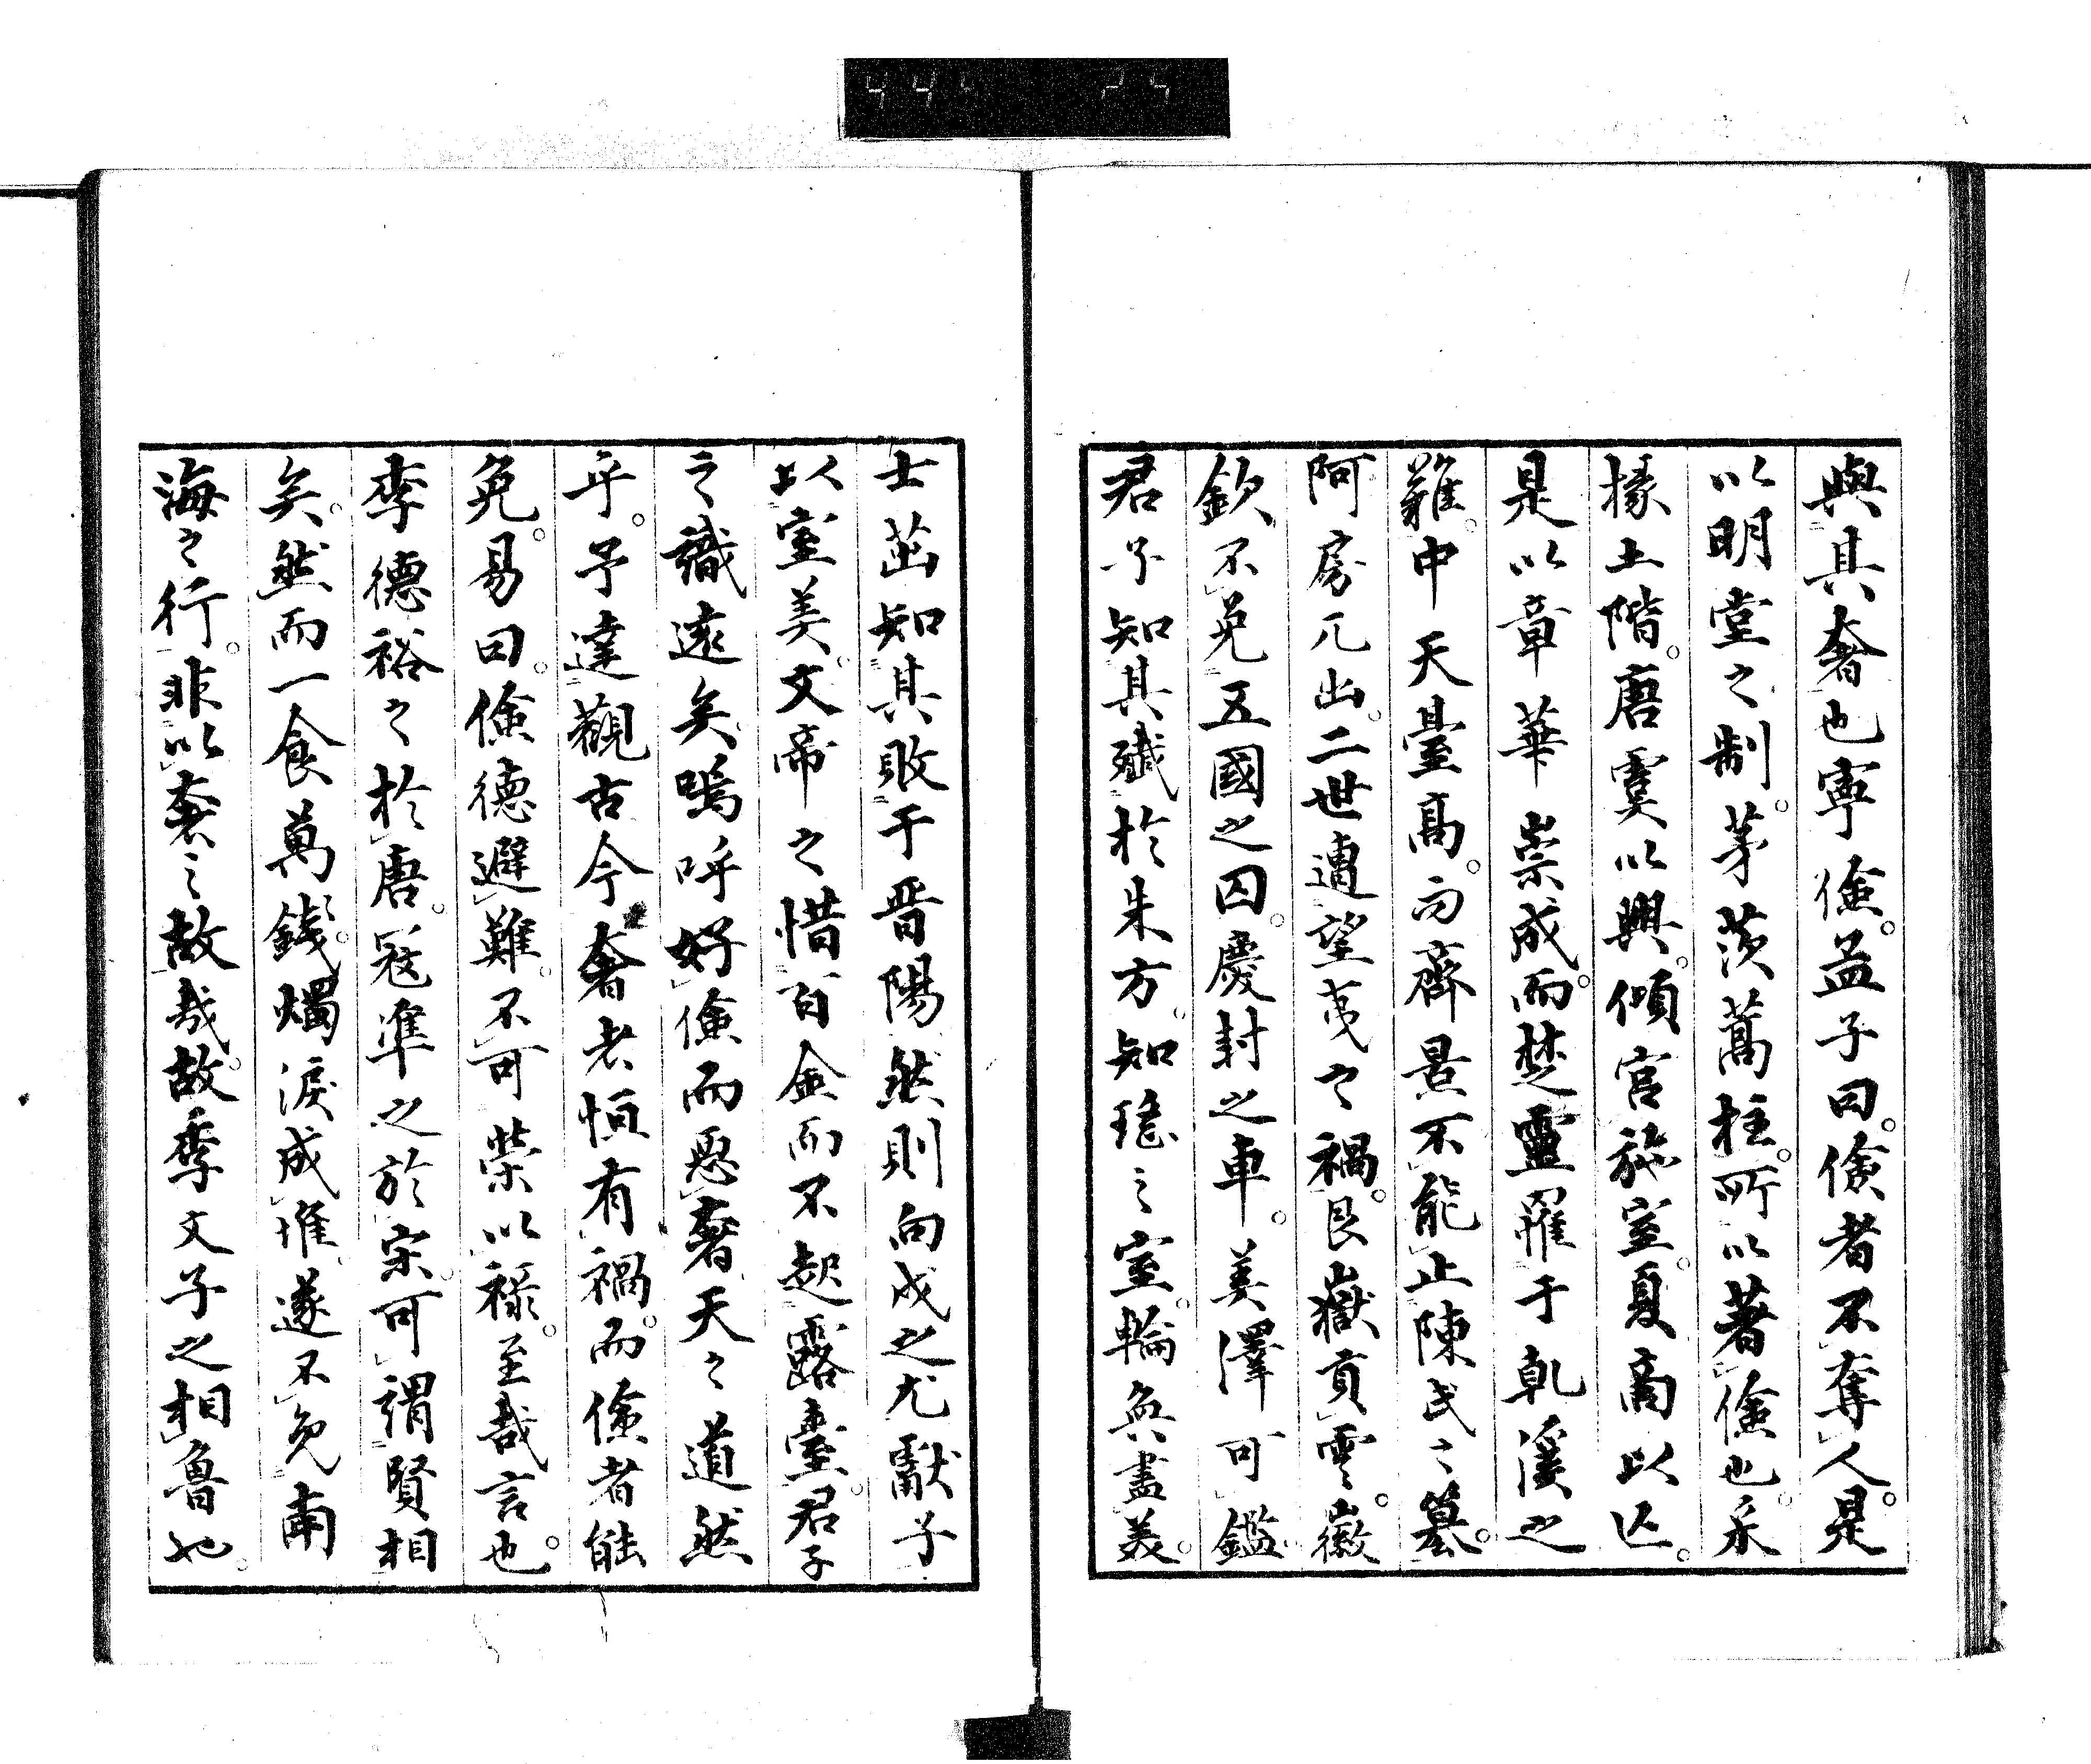 與其奢也寧儉孟子曰儉者不奪人是
以明堂之制茅茨蒿柱所以著儉也采
椽土階唐虞以興傾宮旋室夏商以亡
是以章華崇成而楚靈罹于乾溪之
難中天臺高而齊景不能止陳氏之簒
阿房兀出二世遭望夷之禍艮嶽貢雲徽
欽不免五國之囚慶封之車美澤可鑑
君子知其殲於朱方知瑤之室輪奐盡美
士茁知其敗于晋陽然則向戌之尤獻子
以室美文帝之惜百金而不起露臺君子
之識遠矣嗚呼好儉而惡奢天之道然
乎予達觀古今奢者恒有禍而儉者能
免易曰儉德避難不可榮以祿至哉言也
李德裕之於唐冦準之於宋可謂賢相
矣然而一食萬錢燭淚成堆遂不免南
海之行非以奢之故哉故季文子之相魯也